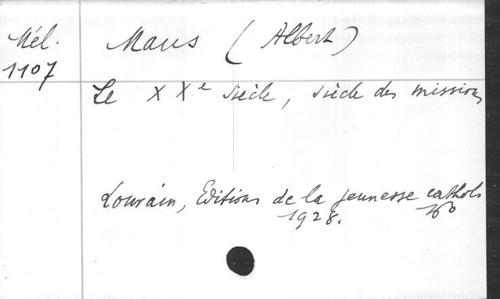 Mél.
1107
Maus (Albert)
Le XXe siècle, siècle des missions
Louvain, Editions de la jeunesse cathol.
1928.